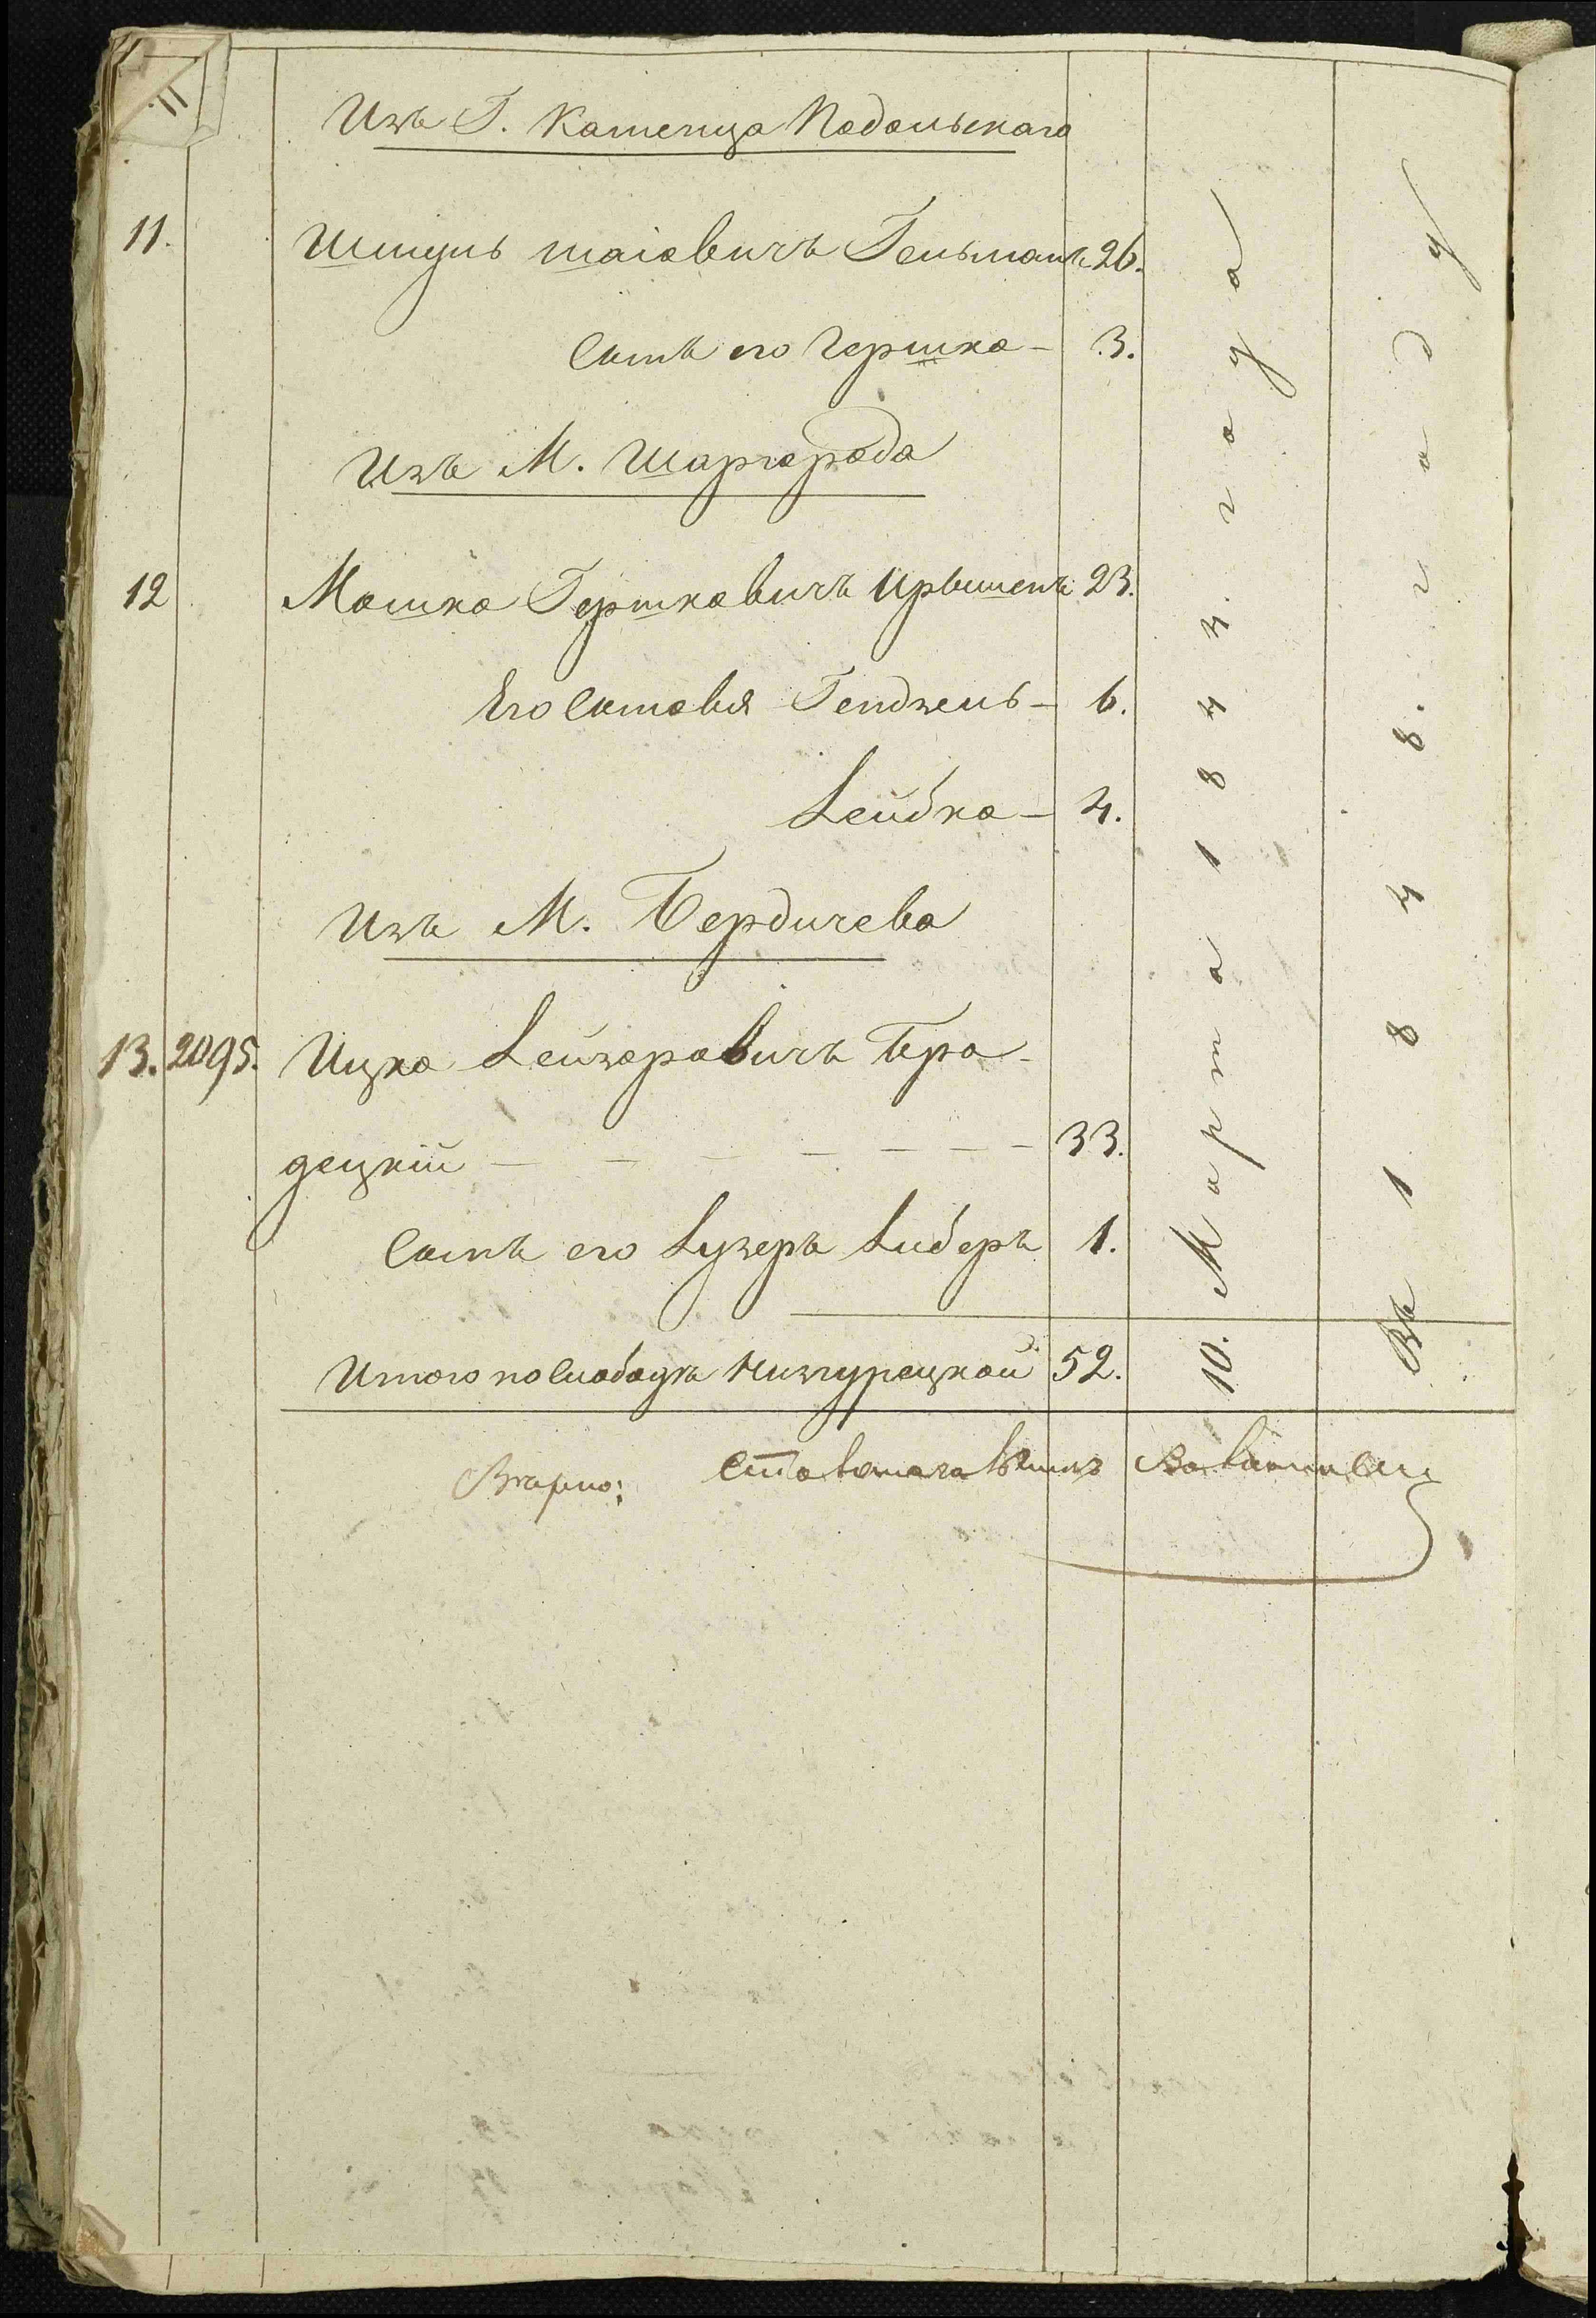 11
Изъ Г. Каменца Подольскаго
11. Шмуль Шаіовичъ Гельманъ 26.
Сынъ его Гершко — 3.
Изъ М. Шаргорода
12 Мошко Гершковичъ 23.
Его Сыновья Гендзель — 6.
Лейбко — 4.
Изъ М. Бердичева
13. 2095. Ицко Лейзоровичъ Бро-
децкій — — — — — — — 33.
Сынъ его Лузеръ Либеръ 1.
Итого по Слободкѣ 52.
10. Марта 1844. года
Въ 1848. году
Вѣрно: